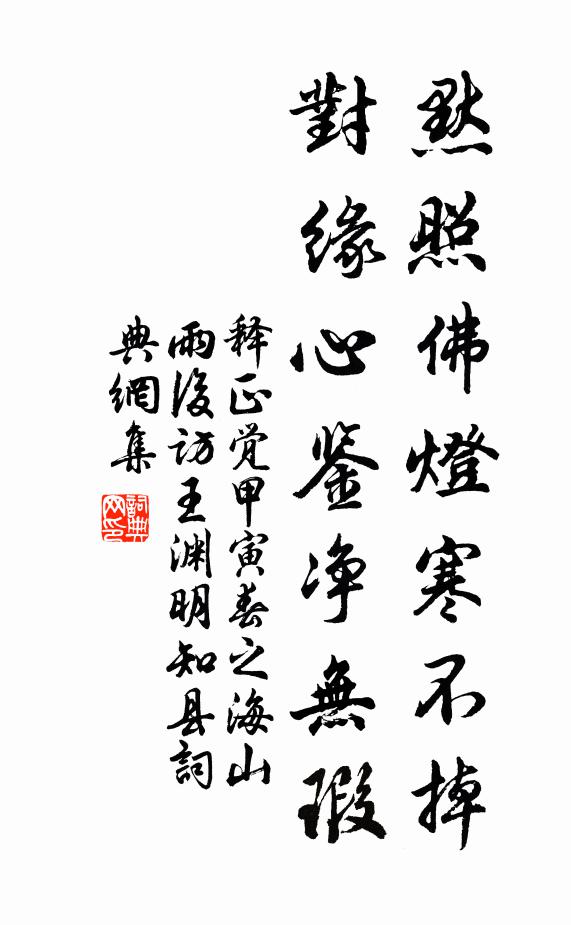 默照佛燈寒不掉
對緣心鉴淨無瑕
释正觉甲寅春之海山
雨後访王渊明知县詞
典網集
詞典網印